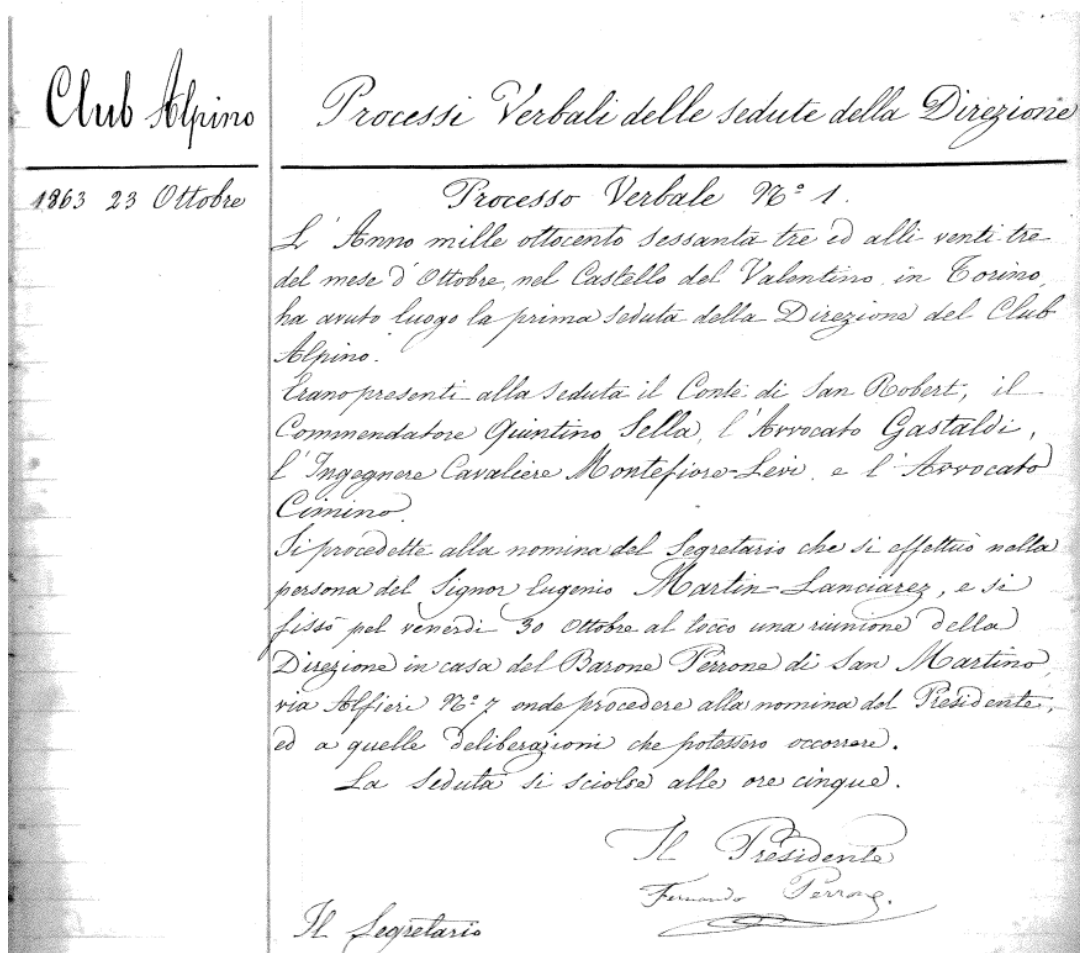 Club Alpino
Processi Verbali delle sedute della Direzione
1863 23 Ottobre
Processo Verbale N.° 1.
L'Anno mille ottocento sessanta tre ed alli venti tre
del mese d'Ottobre, nel Castello del Valentino in Torino,
ha avuto luogo la prima seduta della Direzione del Club
Alpino.
Erano presenti alla seduta il Conte di San Robert, il
Commendatore Quintino Sella, l'Avvocato Gastaldi,
l'Ingegnere Cavaliere Montefiore-Levi, e l'Avvocato
Cimino.
Si procedette alla nomina del Segretario che si effettuò nella
persona del Signor Eugenio Martin-Lanciarez, e si
fissò pel venerdi 30 Ottobre al tocco una riunione della
Direzione in casa del Barone Perrone di San Martino,
via Alfieri N.° 7 onde procedere alla nomina del Presidente,
ed a quelle deliberazioni che potessero occorrere.
La seduta si sciolse alle ore cinque.
Il Presidente
Fernando Perrone.
Il Segretario